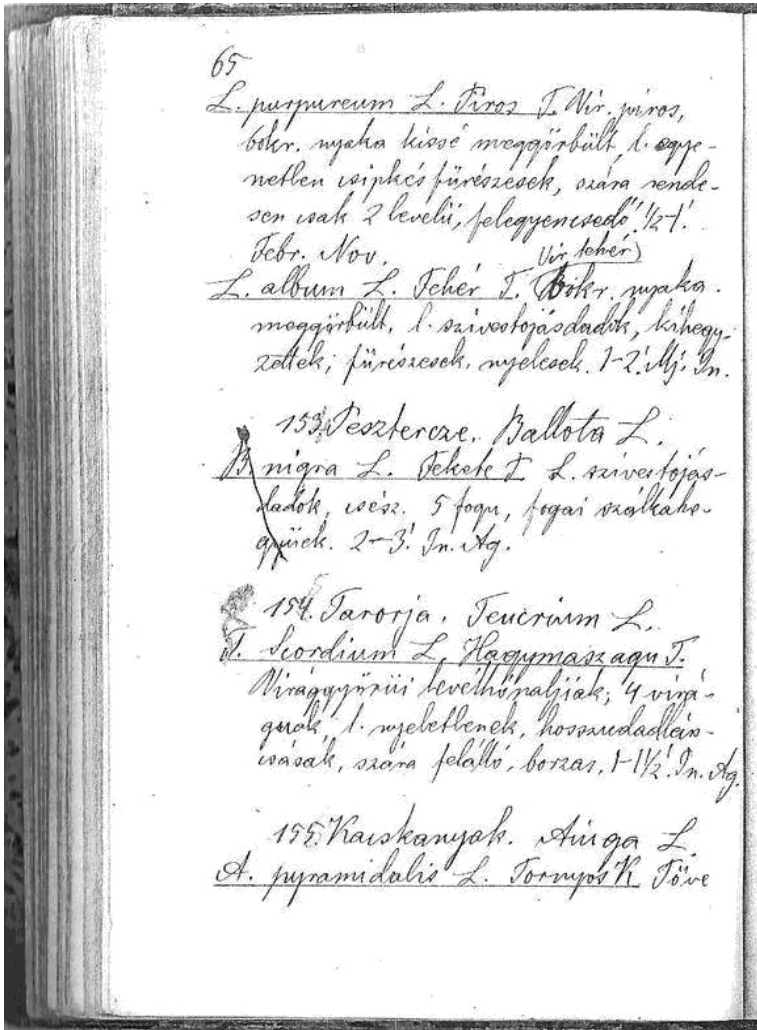 65
L. purpureum L. Piros T. Vir. piros,
bokr. nyaka kissé meggörbült, l. egye-
netlen csipkés fürészesek, szára rende-
sen csak 2 levelü, felegyenesedő. ½-1'.
Febr. Nov.
Vir. fehér
L. album L. Fehér T. Bokr. nyaka
meggörbült, l. szivestojásdadok, kihegy-
zettek, fürészesek, nyelesek. 1-2'. Mj. Jn.
153. Pesztercze. Ballota L.
B. nigra L. Fekete P. L. szivestojás-
dadok, csész. 5 fogu, fogai szálkahe-
gyüek. 2-3'. Jn. Ag.
154. Tarorja. Teucrium L.
T. Scordium L. Hagymaszagu T.
Virággyürüi levélhónaljiak; 4 virá-
guak, l. nyeletlenek, hosszudadláns-
csásak, szára felálló, borzas. 1-1½'. Jn. Ag.
155. Kacskanyak. Aiuga L.
A. pyramidalis L. Tornyos K. Töve